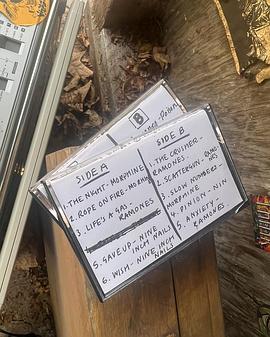 B
SIDE A
1. THE NIGHT - MORPHINE
2. ROPE ON FIRE - MORPHINE
3. LIFE'S A GAS -
RAMONES
5. GAVE UP - NINE
INCH NAILS
6. WISH - NINE INCH
NAILS
SIDE B
1. THE CRUSHER -
RAMONES.
2. SCATTERGUN -
3. SLOW NUMBERZ -
MORPHINE
4. PINION - NIN
5. ANXIETY -
RAMONES.